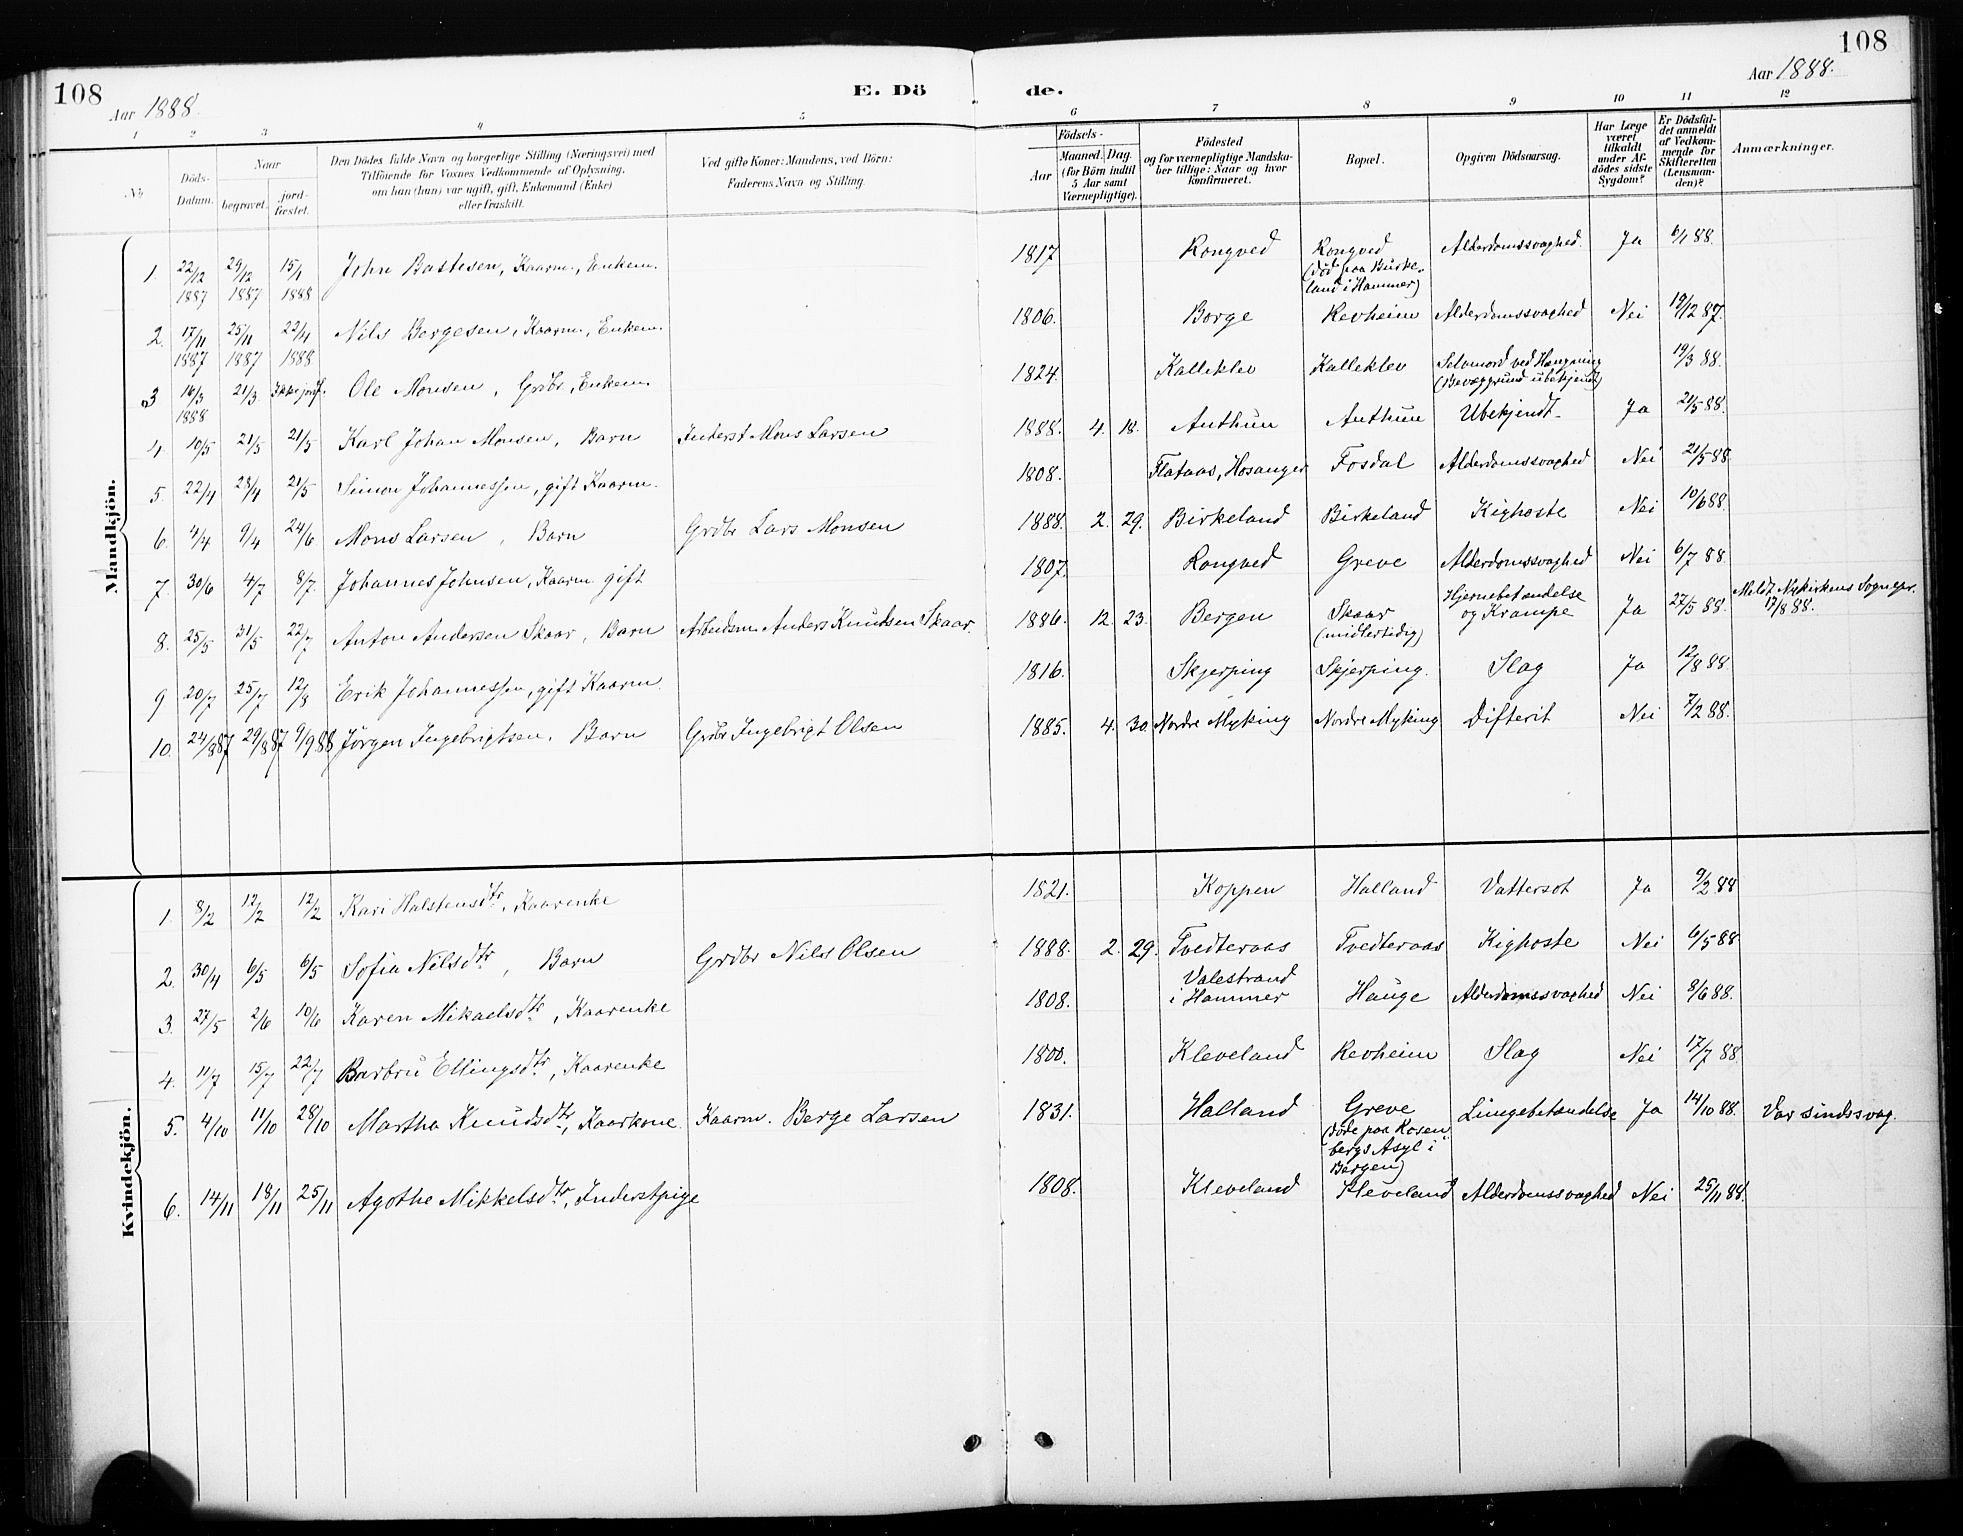 108
Aar 1888.
E. Dö
de.
108
Aar 1888.
1 2 3 4 5 6 7 8 9 10 11 12
No
Döds-Datum.
Naar
begravet.
jord-fæstet.
Den Dödes fulde Navn og borgerlige Stilling (Næringsvei) med
Tilföiende for Voxnes Vedkommende af Oplysning,
om han (hun) var ugift, gift, Enkemand (Enke)
eller fraskilt.
Ved gifte Koner: Mandens, ved Börn:
Faderens Navn og Stilling.
Födsels-
Aar
Maaned. Dag.
(for Börn indtil
5 Aar samt
Værnepligtige).
Födested
og for værnepligtige Mandska-
ber tillige: Naar og hvor
konfirmeret.
Bopæl.
Opgiven Dödsaarsag.
Har Læge
været
tilkaldt
under Af-
dödes sidste
Sygdom?
Er Dödsfal-
det anmeldt
af Vedkom-
mende for
Skifteretten
(Lensman-
den)?
Anmærkninger.
Mandkjön.
1. 22/12 1887 29/12 1887 15/1 1888 John Bastesen, Kaarm., Enkem. 1817 Rongved Rongved (död paa Birke-land i Hammer) Alderdomssvaghed. Ja 6/1 88.
2. 17/11 1887 25/11 1887 22/4 1888 Nils Borgesen, Kaarm., Enkem. 1806. Borge Revheim Alderdomssvaghed Nei 19/12 87.
3 16/3 1888 21/3 Ikke jordf. Ole Monsen, Grdbr., Enkem. 1824. Kalleklev Kalleklev Selvmord ved Hængning (Bevæggrund ubekjendt) 19/3 88.
4. 10/5 21/5 21/5 Karl Johan Monsen, Barn Inderst Mons Larsen 1888. 4. 18. Anthun Anthun Ubekjendt. Ja 21/5 88.
5. 22/4 28/4 21/5 Simon Johannessen, gift Kaarm. 1808. Flataas, Hosanger Fosdal Alderdomssvaghed Nei 21/5 88
6. 4/4 9/4 24/6 Mons Larsen, Barn Grdbr Lars Monsen 1888. 2. 29. Birkeland Birkeland Kighoste Nei 10/6 88.
7. 30/6 4/7 8/7. Johannes Johnsen, Kaarm. gift 1807. Rongved Greve Alderdomssvaghed Nei 6/7 88.
8. 25/5 31/5 22/7 Anton Andersen Skaar, Barn Arbeidsm. Anders Knudsen Skaar. 1886. 12. 23. Bergen Skaar (midlertidig) Hjernebetændelse og Krampe Ja 27/5 88. Meldt Nykirkens Sognepr. 17/8 88.
9 20/7 25/7 12/8 Erik Johannessen, gift Kaarm. 1816. Skjerping Skjerping. Slag Ja 12/8 88.
10. 24/8 87 29/8 87 9/9 88 Jörgen Ingebrigtsen. Barn Grdbr Ingebrigt Olsen 1885. 4. 30. Nordre Myking Nordre Myking Difterit Nei 7/2 88.
Kvindekjön.
1. 8/2 12/2 12/2 Kari Halstensdtr, Kaarenke 1821. Koppen Halland Vattersot Ja 9/2 88
2. 30/4 6/5 6/5 Sofia Nilsdtr, Barn Grdbr Nils Olsen 1888. 2. 29. Tvedteraas Tvedteraas Kighoste Nei 6/5 88
3. 27/5 2/6 10/6 Karen Mikaelsdtr, Kaarenke 1808. Valestrand i Hammer Hauge Alderdomssvaghed Nei 8/6 88.
4. 11/7 15/7 22/7 Barbru Ellingsdtr, Kaarenke 1800. Kleveland Revheim Slag Nei 17/7 88
5. 4/10 11/10 28/10 Martha Knudsdtr, Kaarkone. Kaarm. Berge Larsen 1831. Halland Greve (döde paa Rosen-bergs Asyl i Bergen) Lungebetændelse Ja 14/10 88. Var sindssvag.
6. 14/11 18/11 25/11 Agothe Mikkelsdtr, Inderstpige 1808. Kleveland Kleveland Alderdomssvaghed Nei 25/11 88.